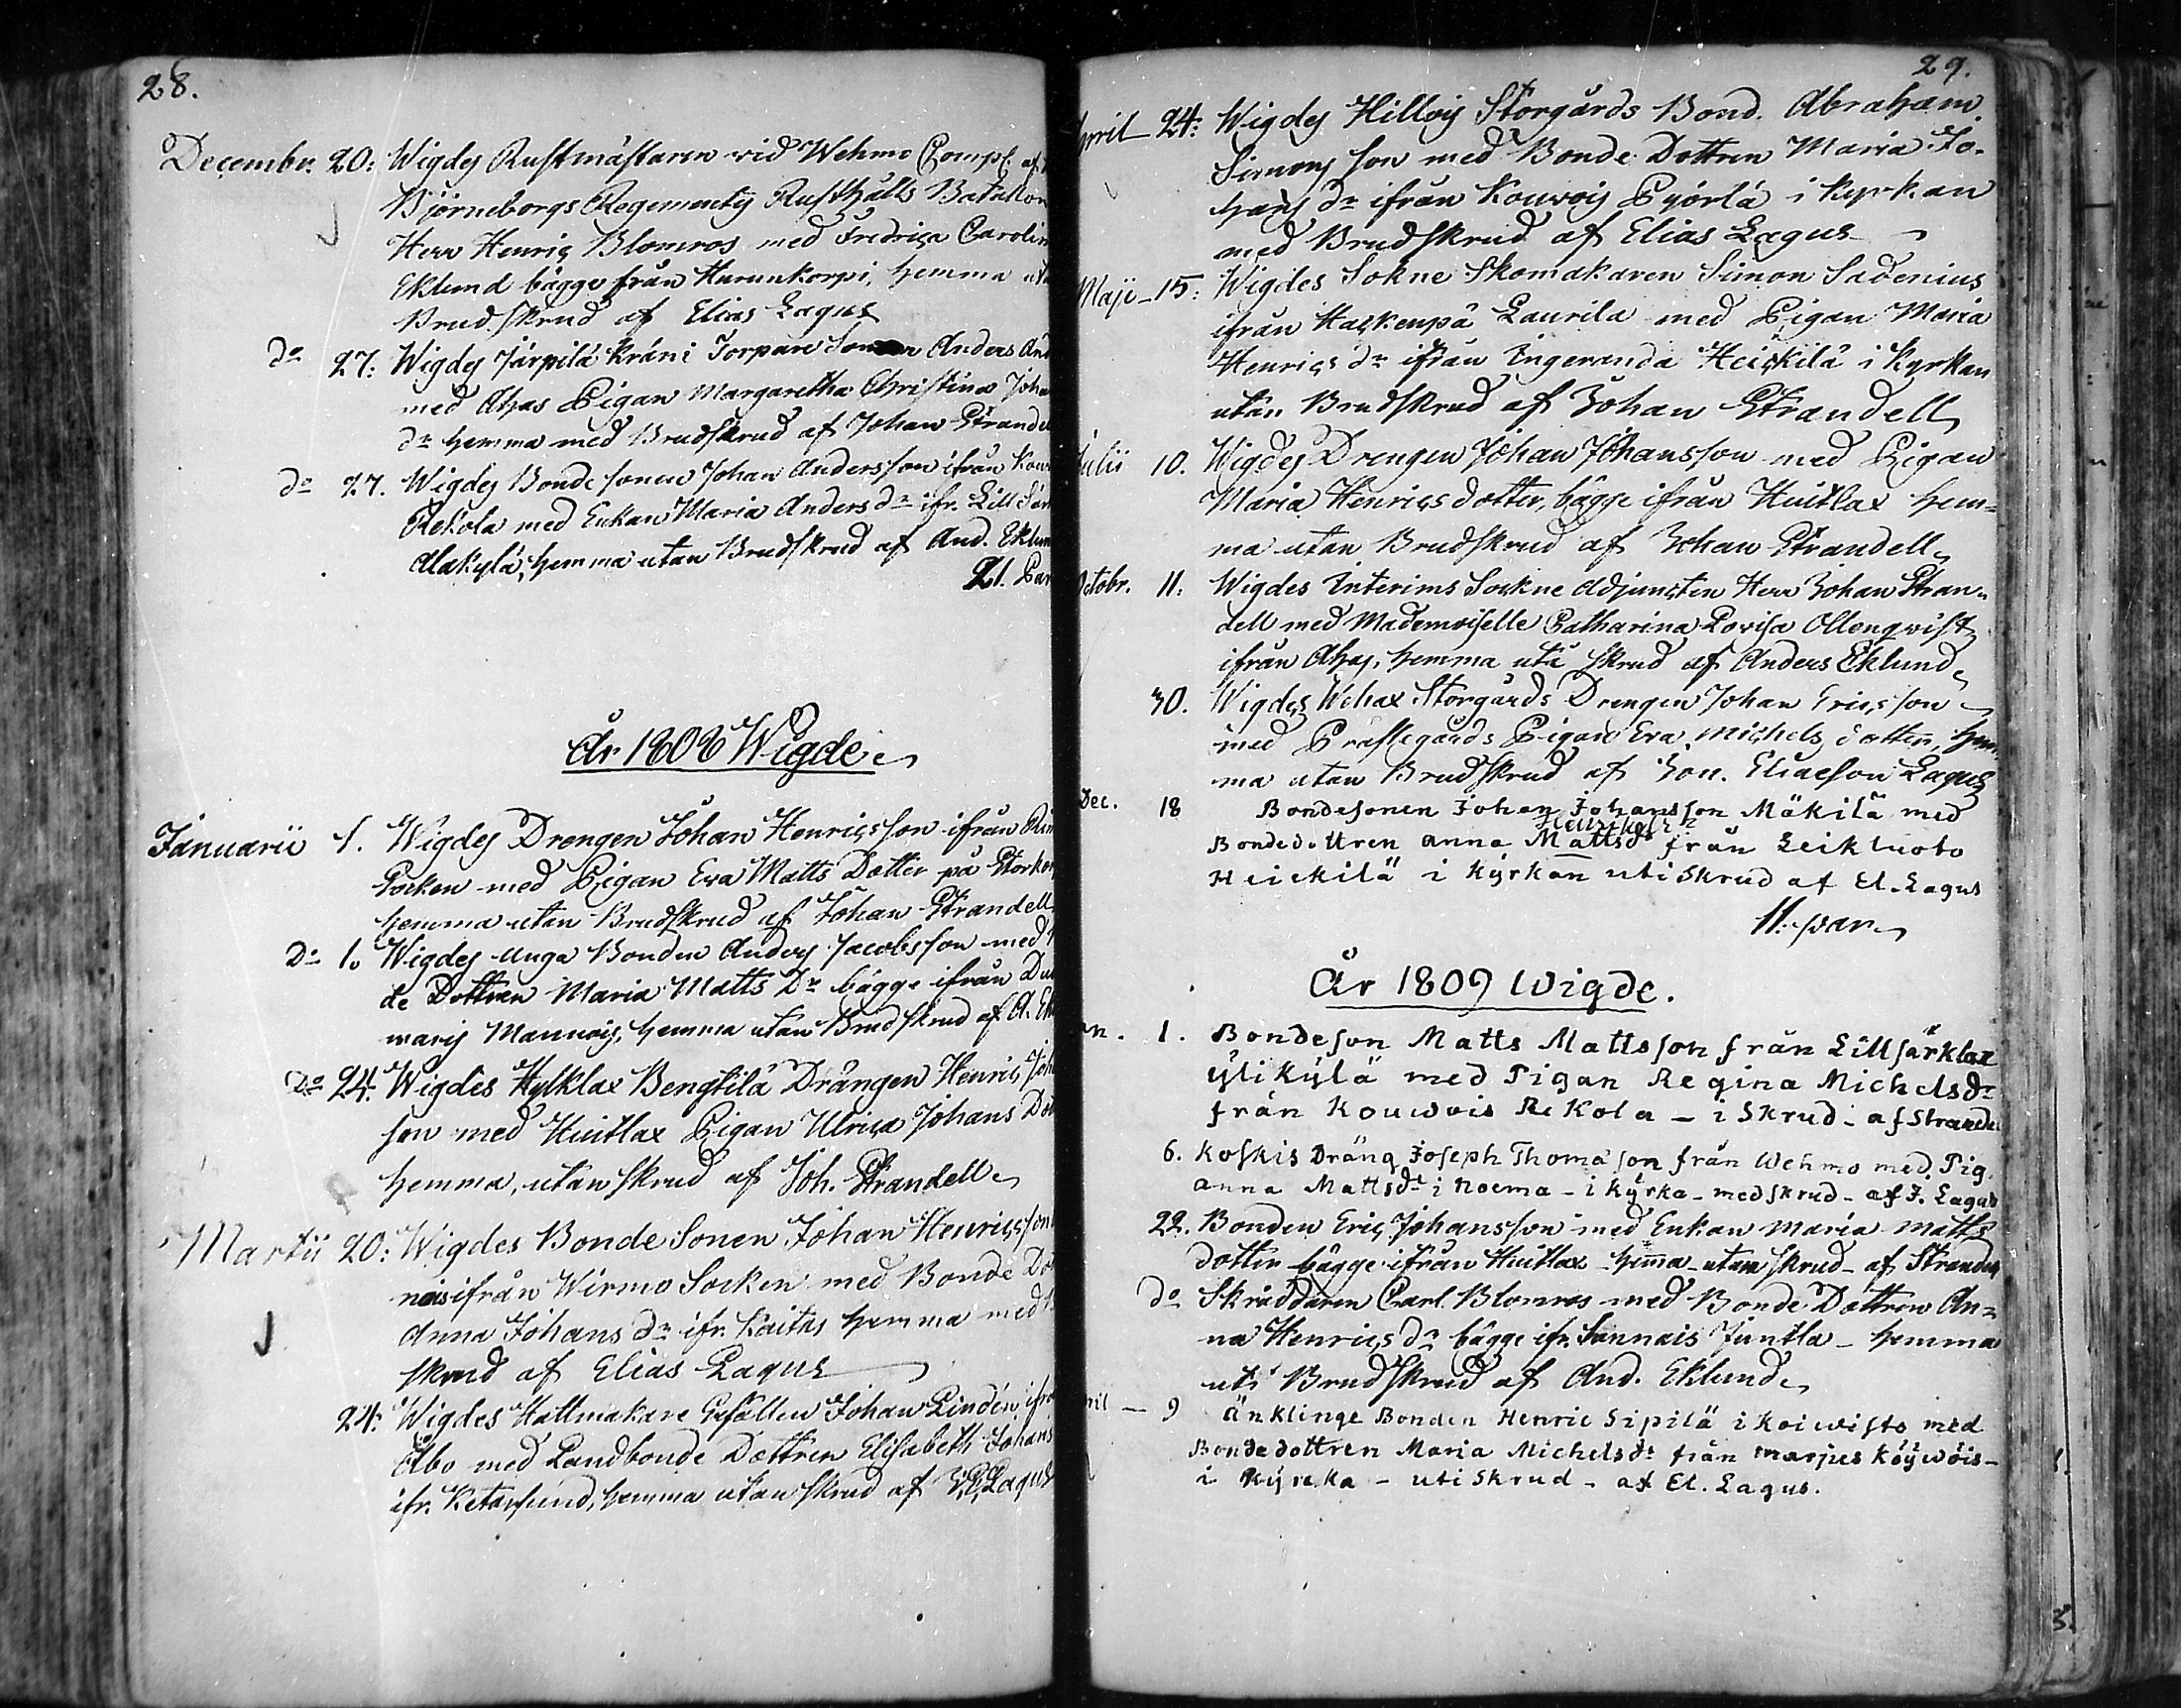 28.
Decembr. 20: Wigdes Rustmästaren wid Wehmo Comp. af
Björneborgs Regements Rusthålls Batallion
Herr Henric Blomros med Fredrica Carolin
Eklund bägge från Hurunkorpi, hemma uta
Brudskrud af Elias Lagus
do 27: Wigdes Järpilä Kräni Torpare Sonen Anders And
med Ahas Pigan Margaretha Christina Joha
dr hemma med Brudskrud af Johan Strandel
do 27. Wigdes Bondesonen Johan Andersson ifrån Kouv
Rekola med Enkan Maria Anders dr ifr. Lill Särk
Alakylä, hemma utan Brudskrud af And. Eklun
21. Par
År 1808 Wigde
Januarii 1. Wigdes Drengen Johan Henricsson ifrån
Socken med Pigan Eva Matts Dotter på Storkor
hemma utan Brudskrud af Johan Strandell
Do 1. Wigdes unga Bonden Anders Jacobsson med
de Dottren Maria Matts Dr bägge ifrån
maris Mannois, hemma utan Brudskrud af A. Ek
Do 24. Wigdes Hylklax Bengtilä Drängen Henric Joh
son med Huitlax Pigan Ulrica Johans Dot
hemma, utan skrud af Joh. Strandell
Martii 20: Wigdes Bonde Sonen Johan Henricsson
ifrån Wirmo Socken med Bonde Dot
Anna Johans dr ifr. Kaitas hemma med
skrud af Elias Lagus
24: Wigdes Hattmakare Gesällen Johan Lindén ifrå
Åbo med Landbonde Dottren Elisabeth Johans
ifr. Ketarsund, hemma utan skrud af J. E. Lagus
29.
April 24: Wigdes Hillois Storgårds Bond. Abraham
Simons son med Bonde Dottren Maria Jo-
hans dr ifrån Kouvois Pyörlä i Kyrkan
med Brudskrud af Elias Lagus
Maji 15: Wigdes Sokne Skomakaren Simon Sadenius
ifrån Haskenpä Laurila med Pigan Maria
Henrics dr ifrån Ingeranda Heickilä i Kyrkan
utan Brudskrud af Johan Strandell
Julii 10. Wigdes Drengen Johan Johansson med Pigan
Maria Henricsdotter, bägge ifrån Huitlax hem-
ma utan Brudskrud af Johan Strandell
Octobr. 11: Wigdes Interims Sockne Adjuncten Herr Johan Stran-
dell med Mademoiselle Catharina Lovisa Ollenqvist
ifrån Ahas, hemma uti skrud af Anders Eklund
30. Wigdes Wehax Storgårds Drengen Johan Ericsson
med Prästegårds Pigan Eva Michels dotter, hem-
ma utan Brudskrud af Jon. Eliaeson Lagus
Dec. 18 Bondesonen Johan Johansson Mäkilä med
Henriksdr
Bondedottren Anna Mattsdr från Leikluoto
Heickilä i Kyrkan uti Skrud af El. Lagus
11. par
År 1809 Wigde.
n. 1. Bondeson Matts Mattsson från Lillsärklax
Ylikylä med Pigan Regina Michelsdr
från Kouwois Rekola - i Skrud - af Strandel
6. Koskis Dräng Joseph Thomason från Wehmo med Pig.
Anna Mattsdr i Noema - i Kyrka - med skrud - af J. Lagus
22. Bonden Eric Johansson med Enkan Maria Matts
dotter bägge ifrån Huitlax - hemma - utan skrud - af Strandell
do Skräddaren Carl Blomros med Bonde Dottren An-
na Henrics dr bägge ifr. Sannais Juntla - hemma
uti Brudskrud af And. Eklund
ril - 9 Änklinge Bonden Henric Sipilä i Koiwisto med
Bondedottren Maria Michelsdr från Marjus Köywöis -
i Kyrcka - uti skrud - af El. Lagus.